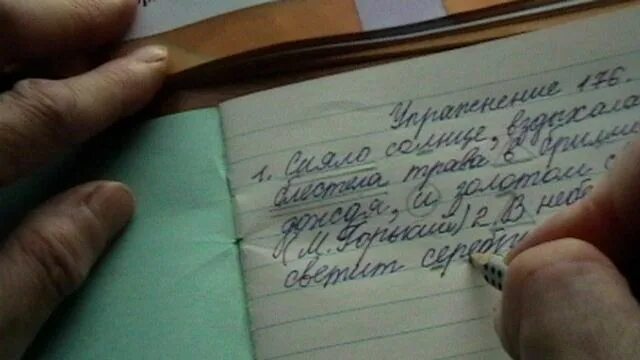 Упражнение 176.
1. Сияло солнце, вздыхала
блестела трава в
дождя, и золотом
(М. Горький) 2. В небе
светит